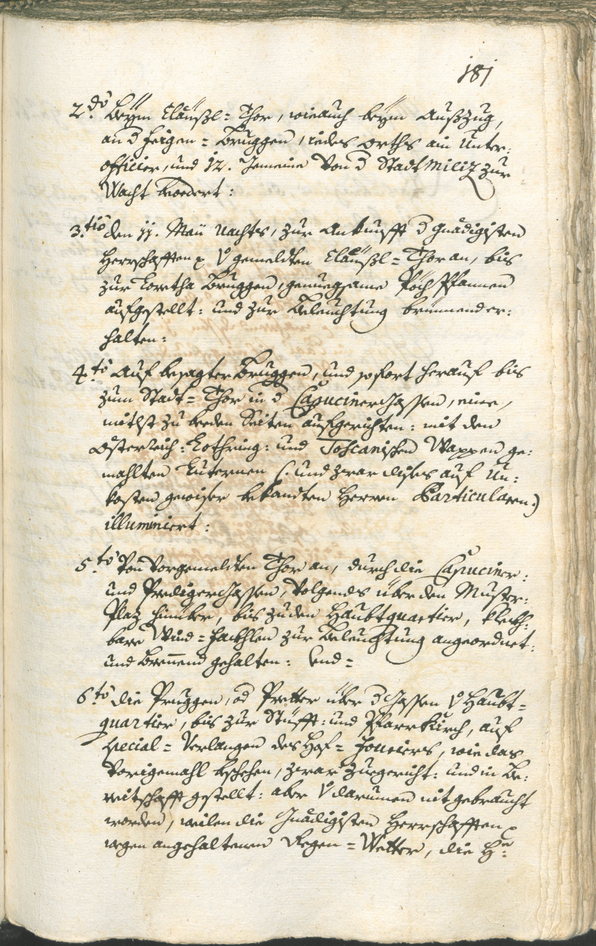 181
2.do Beÿm Claußl= Thor, wieauch beÿm Außzug,
an d Heigen= Bruggen, iedes orths ain Unter:
officier, und 12. Gemeine von d Stadt Miliz zur
Wacht beordert:
3.tio den 11. Maii Nachts, zur Ankunfft d gnädigisten
Herrschafften p V gemeldten Claußl= Thor an, bis
zur Loretha Bruggen, genuegsame Pöch Pfannen
aufgestellt: und zur Beleuchtung brünnender:
halten:
4.to Auf besagter Bruggen, und sofort herauf bis
zum Stadt= Thor in d Capuciner Gassen, eine,
zu beeden Seiten aufgerichten: mit den
Österreich: Lothring: und Toscanischen Wappen ge:
mahlten Luternen (: und zwar dises auf Un:
kosten gewiser bekandten Herren Particularen:)
illuminiert:
5.to Von vorgemeldten Thor an, durch die Capuciner:
und Prediger Gassen, volgends über den Muster:
Plaz hinüber, bis zu den Haubtquartier,
bare Wind= Fachlen zur Beleuchtung angeordnet:
und brennend gehalten: End=
6.to die Pruggen, od Pretter über d Gassen V Haubt=
quartier, bis zur Stüfft: und Pfarrkirch, auf
special= Verlangen des Hof= Fouriers, wie das
vorigemahl beschehen, zwar zuegericht: und in Be:
reitschafft gestellt: aber V darumen nit gebraucht
worden, weilen die Gnädigisten Herrschafften p
wegen angehaltenen Regen= Wetter, die H: